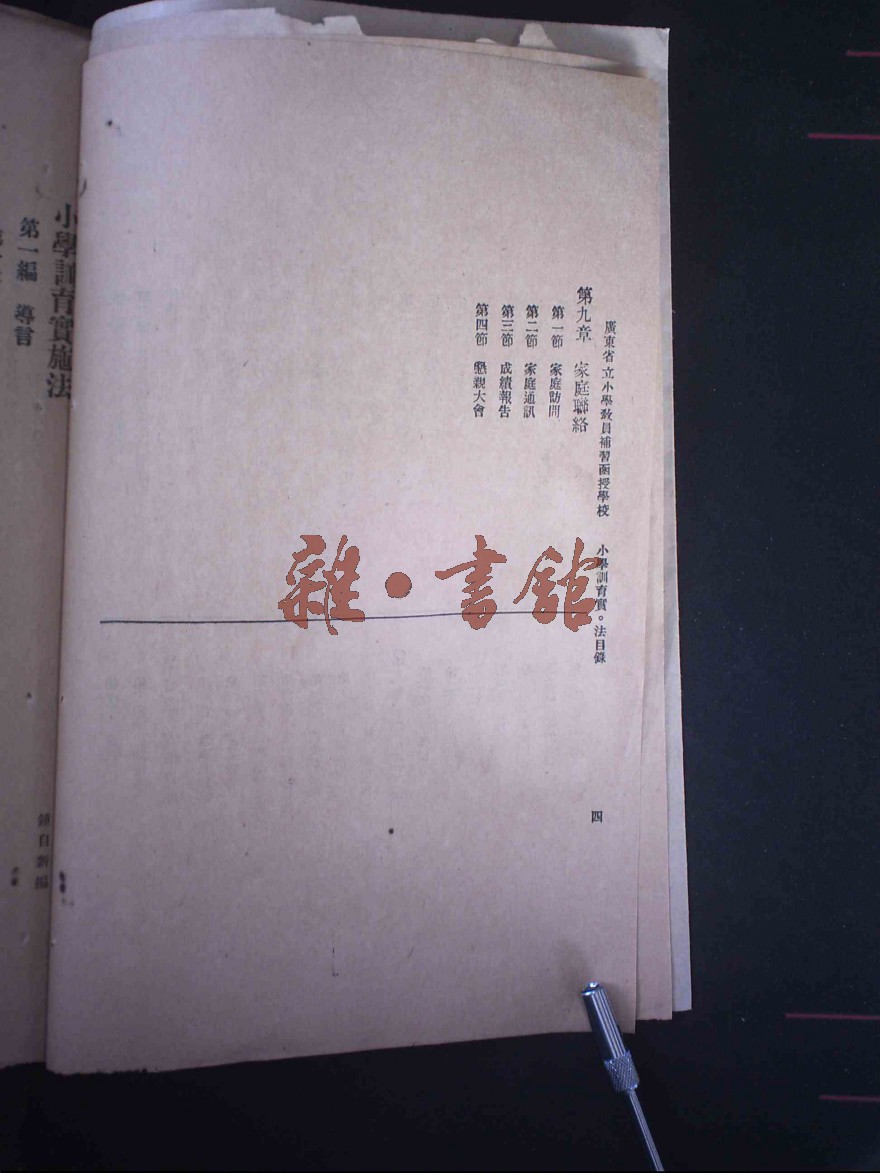 廣東省立小學教員補習函授學校　小學訓育實。法目錄　四
第九章　家庭聯絡
第一節　家庭訪問
第二節　家庭通訊
第三節　成績報告
第四節　懇親大會
雜·書館
小學訓育實施法
第一編　導言